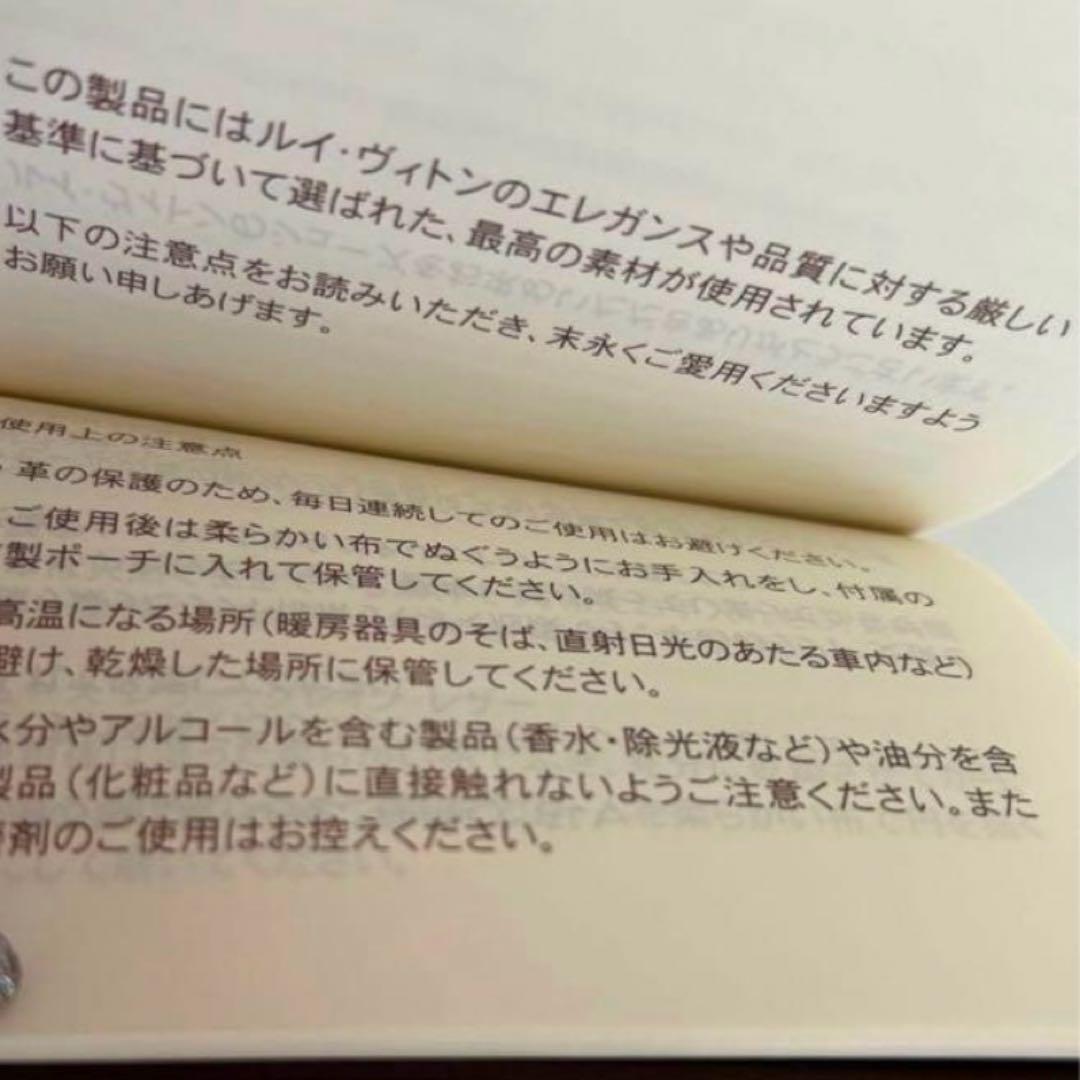 この製品にはルイ・ヴィトンのエレガンスや品質に対する厳しい
基準に基づいて選ばれた、最高の素材が使用されています。
以下の注意点をお読みいただき、末永くご愛用くださいますよう
お願い申しあげます。
使用上の注意点
・革の保護のため、毎日連続してのご使用はお避けください。
ご使用後は柔らかい布でぬぐうようにお手入れをし、付属の
製ポーチに入れて保管してください。
高温になる場所(暖房器具のそば、直射日光のあたる車内など)
避け、乾燥した場所に保管してください。
水分やアルコールを含む製品(香水・除光液など)や油分を含
製品(化粧品など)に直接触れないようご注意ください。また
剤のご使用はお控えください。